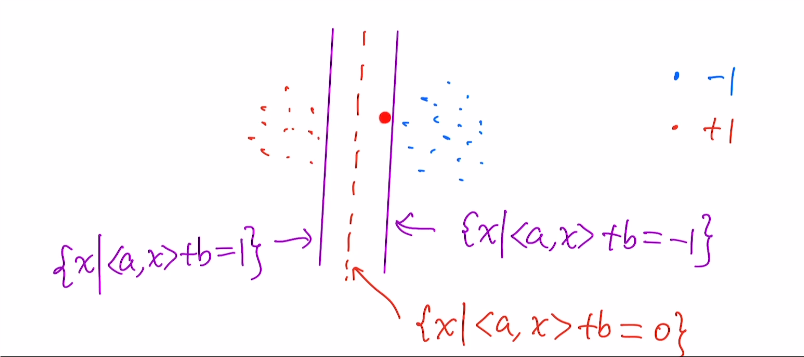 -1
+1
{x|<a,x>+b=1}
{x|<a,x>+b=-1}
{x|<a,x>+b=0}